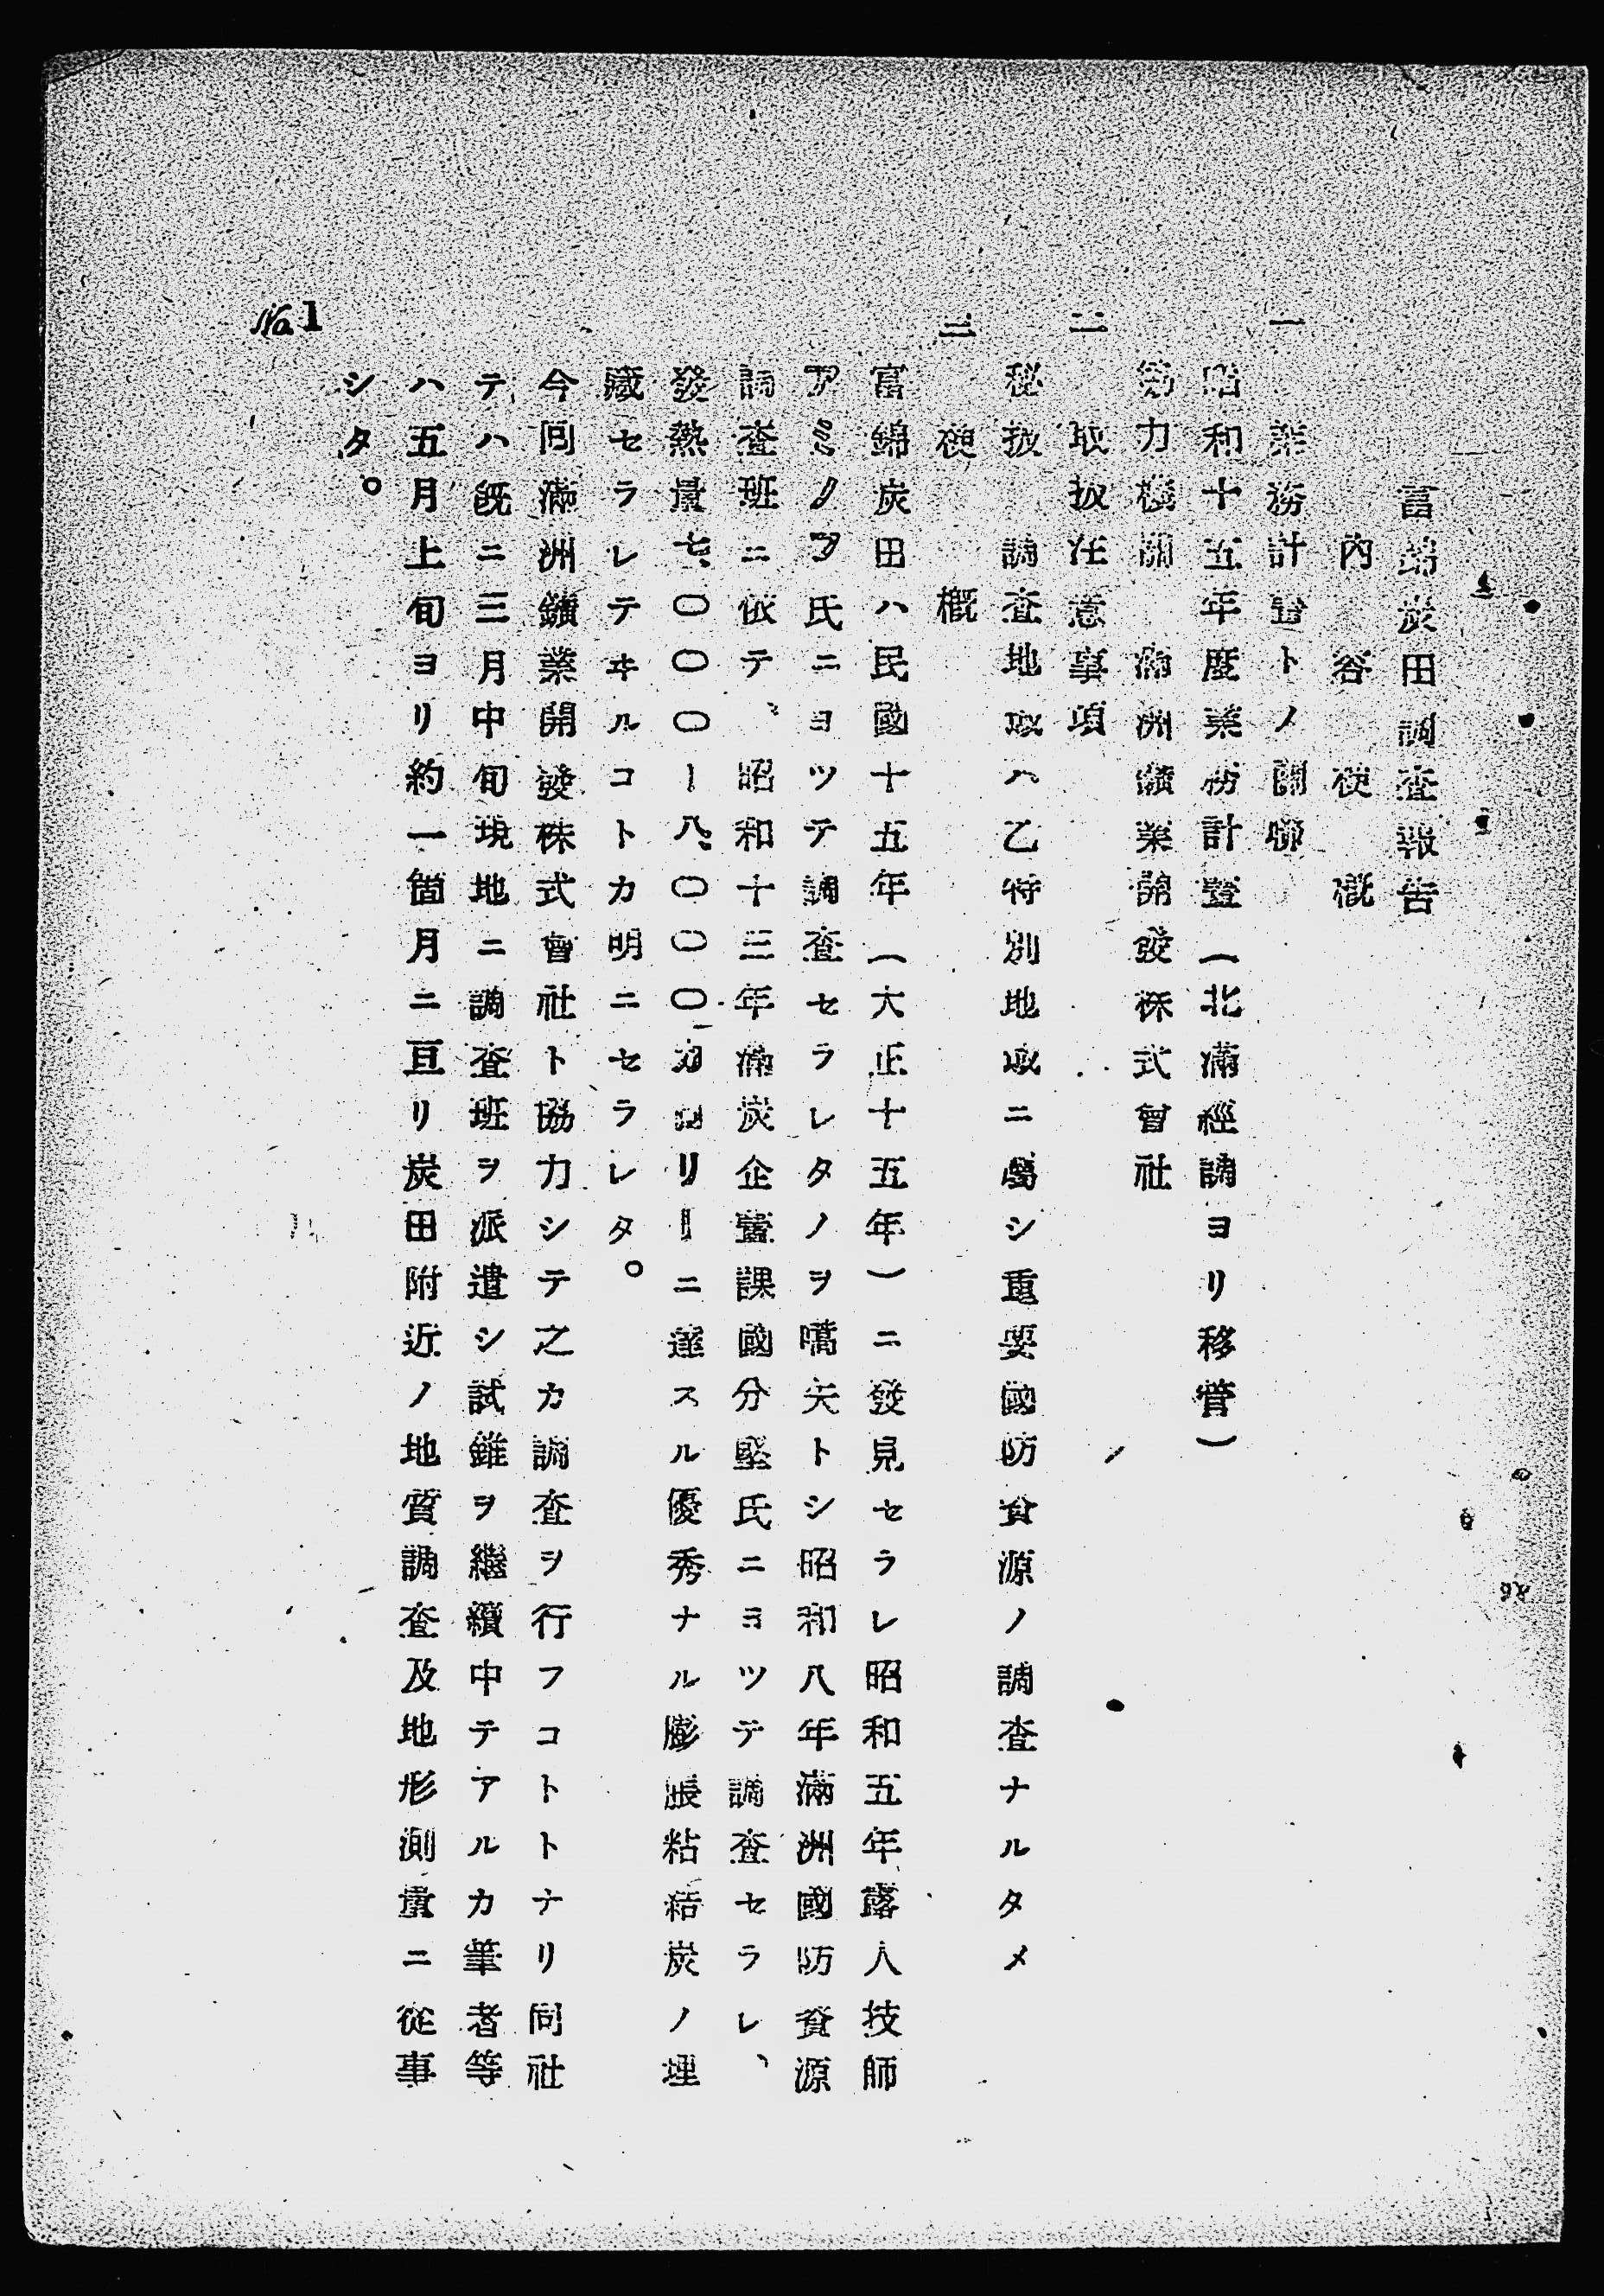 富錦炭田調査報告
內容梗概
一 業務計畫トノ關聯
昭和十五年度業務計畫(北滿經調ヨリ移管)
協力機關 滿洲鑛業開發株式會社
二 取扱注意事項
秘扱 調査地域ハ乙特別地域ニ屬シ重要國防資源ノ調査ナルタメ
三 梗概
富錦炭田ハ民國十五年(大正十五年)ニ發見セラレ昭和五年露人技師
アミノフ氏ニヨツテ調査セラレタノヲ嚆矢トシ昭和八年滿洲國防資源
調査班ニ依テ、昭和十三年滿炭企畫課國分堅氏ニヨツテ調査セラレ、
發熱量七、〇〇〇ー八、〇〇〇カロリーニ達スル優秀ナル膨脹粘結炭ノ埋
藏セラレテヰルコトカ明ニセラレタ。
今回滿洲鑛業開發株式會社ト協力シテ之カ調査ヲ行フコトトナリ同社
テハ既ニ三月中旬現地ニ調査班ヲ派遣シ試錐ヲ繼續中テアルカ筆者等
ハ五月上旬ヨリ約一箇月ニ亘リ炭田附近ノ地質調査及地形測量ニ從事
シタ。
No.1